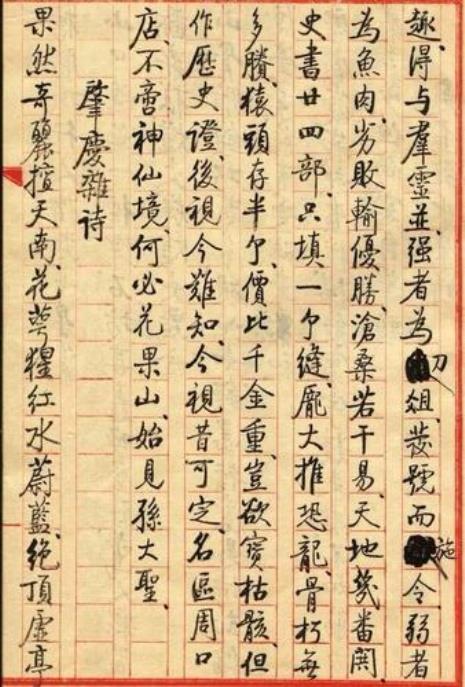 趣、得与羣靈並、强者為刀俎、發號而施令、弱者
為魚肉、劣敗輸優勝、滄桑若干易、天地幾番
史書廿四部、只填一个縫、龐大推恐龍、骨朽無
多賸、猿頭存半个、價比千金重、豈欲寶枯骸、但
作歷史證、後視今難知、今視昔可定、名區周口
店、不啻神仙境、何必花果山、始見孫大聖、
肇慶雜诗
果然奇麗擅天南、花萼猩红水蔚藍、绝頂虚亭